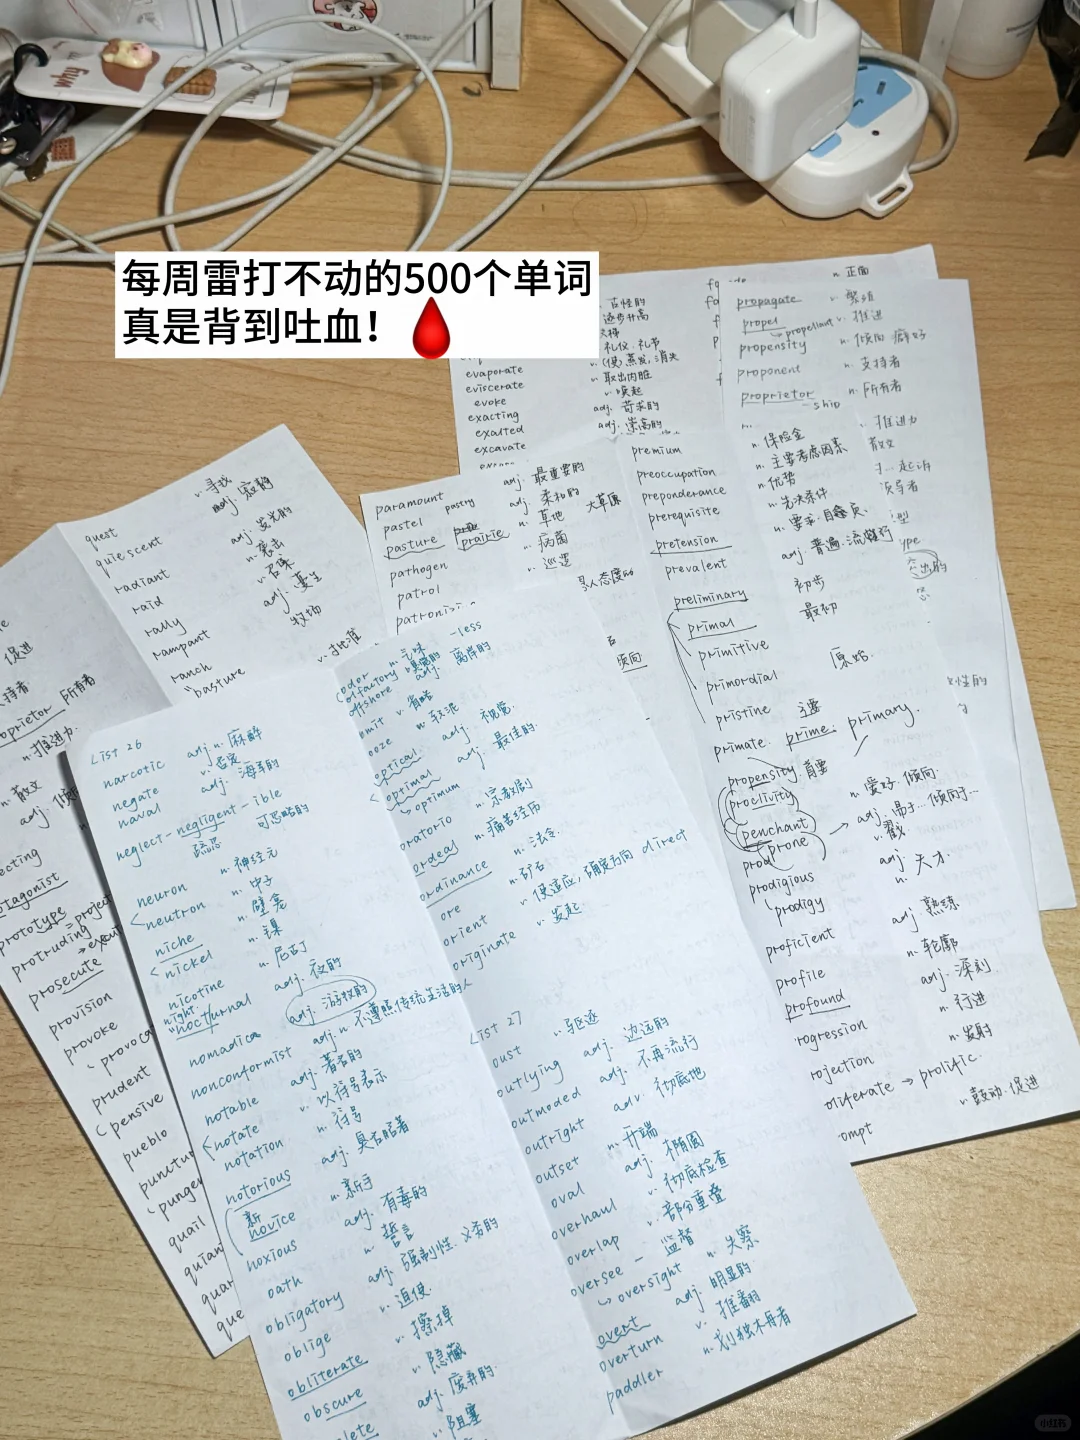 why
每周雷打不动的500个单词
真是背到吐血！
逐步升高
礼仪 礼节
evaporate v. (使)蒸发,消失
eviscerate v. 取出内脏
evoke v. 唤起
exacting adj. 苛求的
exalted adj. 崇高的
excavate
n. 正面
propagate v. 繁殖
propel v. 推进
→ propellant
propensity n. 倾向 癖好
proponent n. 支持者
proprietor n. 所有者
-ship
推进力
散文
起诉
领导者
premium n. 保险金
preoccupation n. 主要考虑因素
preponderance n. 优势
prerequisite n. 先决条件
pretension n. 要求·自负
prevalent adj. 普遍·流行
preliminary 初步
primal 最初
primitive
primordial 原始
pristine
primate. prime. 主要 primary.
首要
propensity n. 爱好·倾向
proclivity
penchant adj. 易于…倾向于…
prone
prod v. 戳
prodigious adj.
prodigy n. 天才
proficient adj. 熟练
profile n. 轮廓
profound adj. 深刻
rogression n. 行进
rojection n. 发射
oliferate → prolific
ompt v. 鼓动·促进
paramount adj. 最重要的
pastel pastry adj. 柔和的
pasture prairie n. 草地 大草原
pathogen n. 病菌
patrol v. 巡逻
quest v. 寻找
quiescent adj. 寂静
radiant adj. 发光的
raid n. 袭击
rally v. 召集
rampant adj. 蔓生
ranch 牧场
pasture
促进
oprietor 所有者
n. 推进力
n. 散文
adj.
ecting
otagonist
prototype
protruding project
prosecute
provision
provoke
prudent
pensive
pueblo
quail
que
List 26
narcotic adj. n. 麻醉
negate v. 否定
naval adj. 海军的
neglect - negligent - ible
疏忽 可忽略的
neuron n. 神经元
neutron n. 中子
niche n. 壁龛
nickel n. 镍
nicotine n. 尼古丁
night.
nocturnal adj. 夜的
nomadica adj. 游牧的
nonconformist adj. n. 不遵照传统生活的人
notable adj. 著名的
notate v. 以符号表示
notation n. 符号
notorious adj. 臭名昭著
新
novice n. 新手
noxious adj. 有毒的
oath n. 誓言
obligatory adj. 强制性·义务的
oblige v. 迫使
obliterate v. 擦掉
obscure v. 隐藏
lete adj. 废弃的
v. 阻塞
odor n. 气味 -less
olfactory 嗅觉的
offshore adj. 离岸的
omit v. 省略
ooze n. 软泥
optical adj. 视觉
optimal adj. 最佳的
→ optimum
oratorio n. 宗教剧
ordeal n. 痛苦经历
ordinance n. 法令
ore n. 矿石
orient v. 使适应,确定方向 direct
originate v. 发起
List 27
oust v. 驱逐
outlying adj. 边远的
outmoded adj. 不再流行
outright adv. 彻底地
outset n. 开端
oval adj. 椭圆
overhaul v. 彻底检查
overlap v. 部分重叠
oversee - 监督
→ oversight n. 失察
overt adj. 明显的
overturn v. 推翻
paddler n. 划独木舟者
小红书